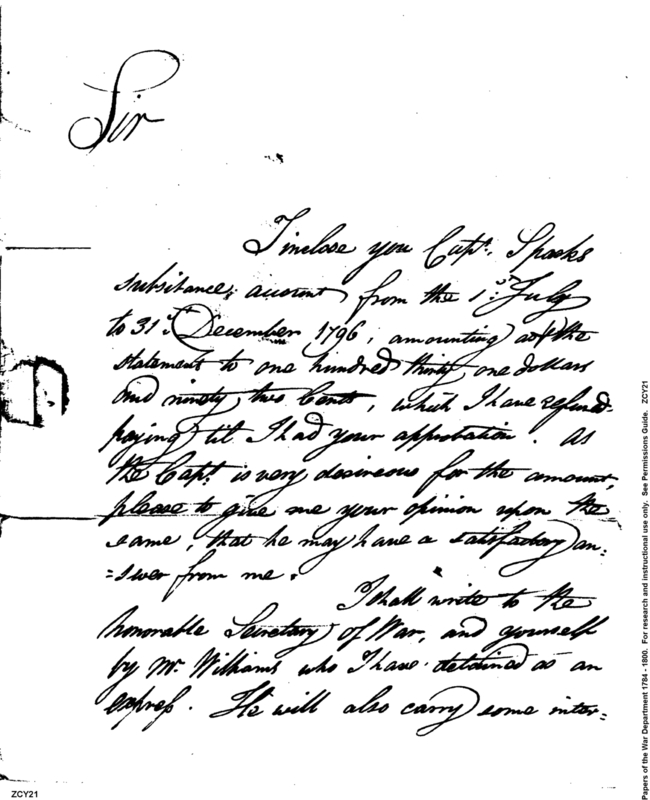 Sir
I inclose you Capt. Sparks
subsistance, account from the 1.st July
to 31.st December 1796, amounting as the
statement to one hundred thirty one dollars
and ninety two Cents, which I have refused
paying til I had your approbation. As
the Capt. is very desireous for the amount,
please to give me your opinion upon the
same, that he may have a satisfactory an:
=swer from me.
I shall write to the
honorable Secretary of War, and yourself
by Mr. Williams who I have detained as an
express. He will also carry some inter=
ZCY21
Papers of the War Department 1784 - 1800. For research and instructional use only. See Permissions Guide. ZCY21